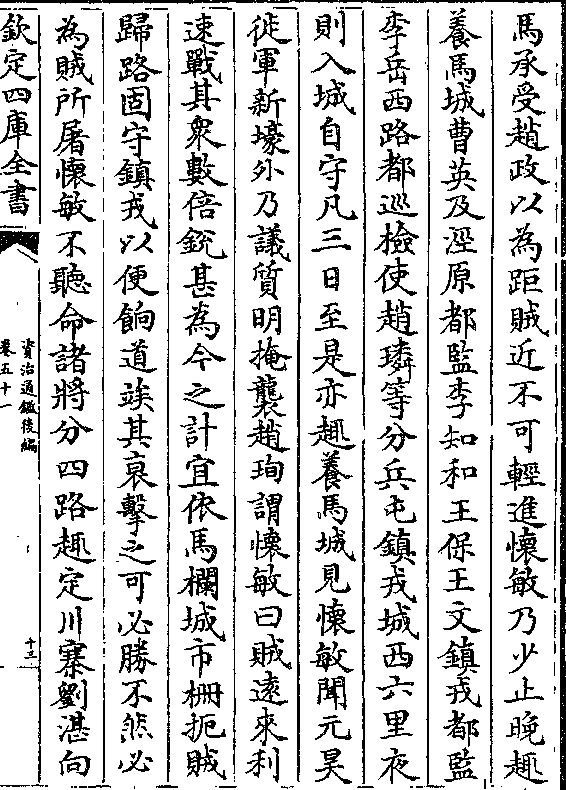 馬承受趙政以為距賊近不可輕進懷敏乃少止晚趣
養馬城曹英及涇原都監李知和王保王文鎮戎都監
李岳西路都巡檢使趙璘等分兵屯鎮戎城西六里夜
則入城自守凡三日至是亦趣養馬城見懷敏聞元昊
徙軍新壕外乃議質明掩襲趙珣謂懷敏曰賊遠來利
速戰其衆數倍鋭甚為今之計宜依馬欄城市柵扼賊
歸路固守鎮戎以便餉道竢其衰擊之可必勝不然必
為賊所屠懷敏不聽命諸將分四路趣定川寨劉湛向
欽定四庫全書
資治通鑑後編
卷五十一
十三